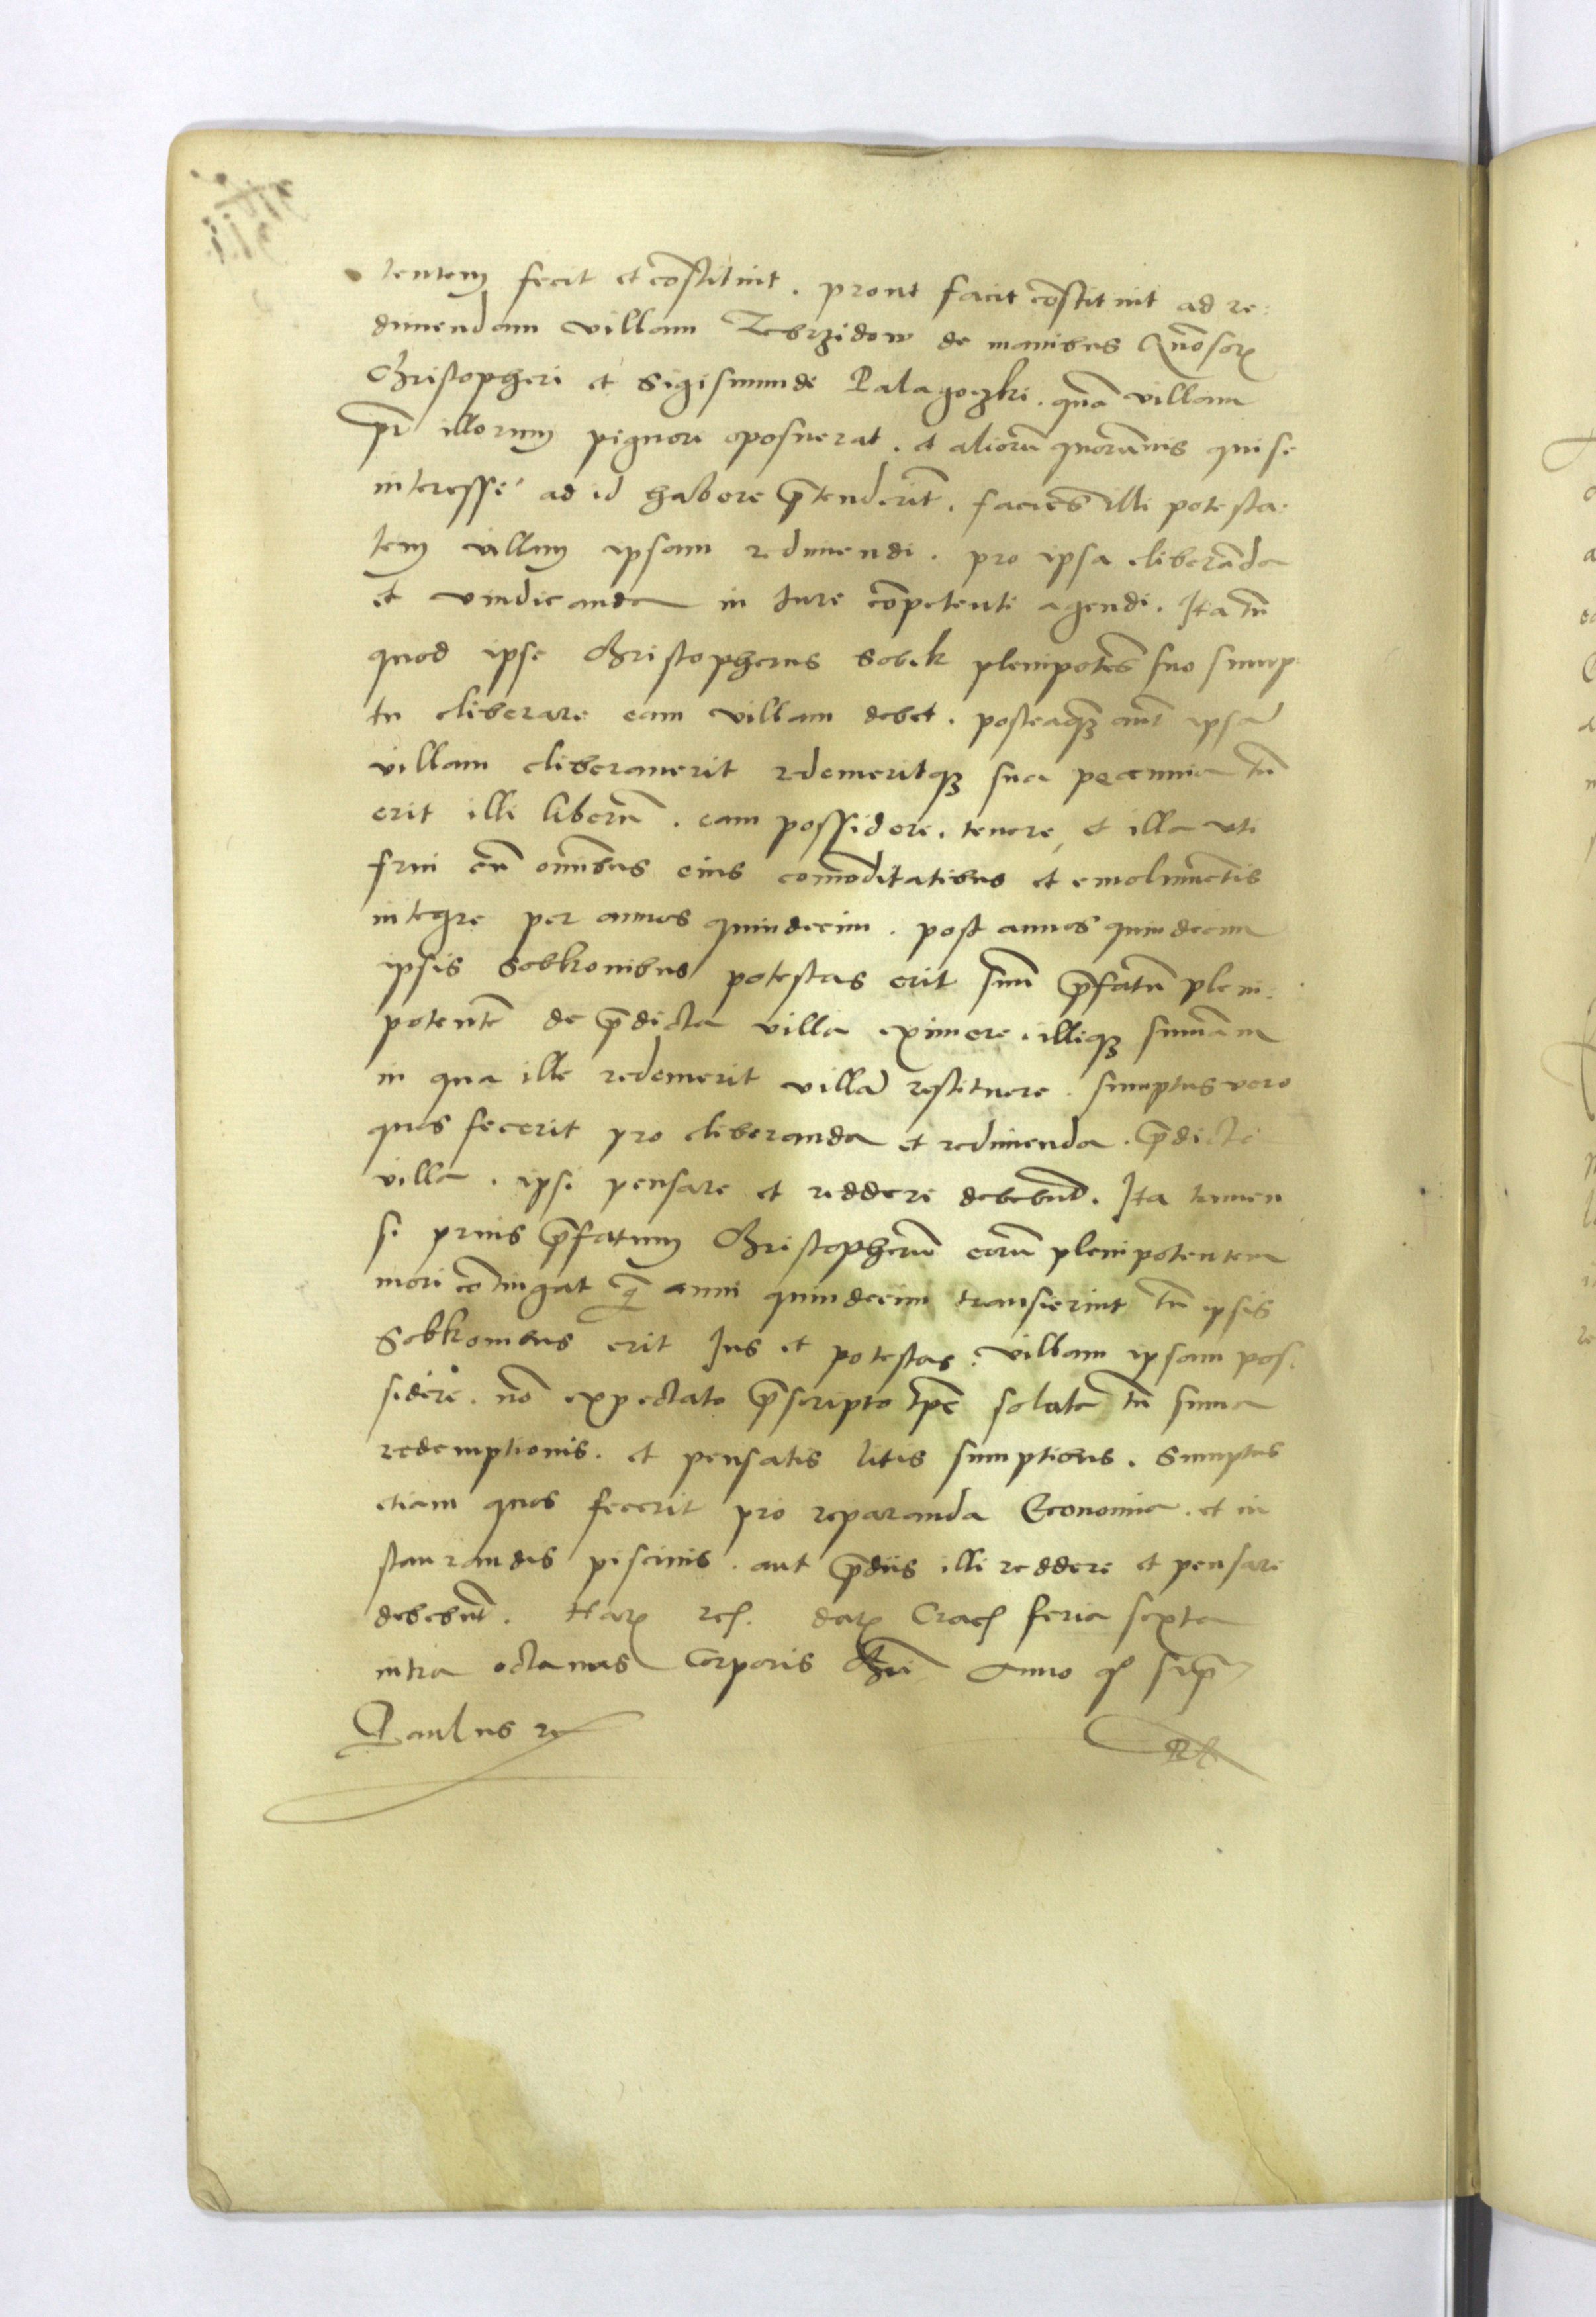 tentem fecit et cōstituit. prout facit cōstituit ad re:
dimendam villam Zebrzidow de manibus Gn̄osorꝫ
Christopheri et Sigismundi Palagoczki. quā villam
pr̄ illorum pignori oposuerat. et aliorū quorūuis qui se
interesse ad id habere p̄tenderīt. faciēs illi potesta:
tem villam ipsam redimendi. pro ipsa eliberāda
et vindicanda in Iure cōpetenti agendi. Ita tn̄
quod ipse Christopherus Sobek plenipotēs suo sump:
tu eliberare eam villam debet. posteaqꝫ aūt ipsā
villam eliberauerit redemeritqꝫ sua pecunia tū
erit illi liberū. eam possidere. tenere, et illa vti
frui cū om̄ibus eius com̄oditatibus et emolumētis
integre per annos quindecim. post annos quindecim
ipsis Sobkonibus potestas erit suū p̄fatū pleni:
potentē de p̄dicta villa eximere. illiqꝫ sum̄am
in qua ille redemerit villā restituere. sumptus vero
quos fecerit pro eliberanda et redimenda. p̄dicta
villa. ipsi pensare et reddere debebūt. Ita tamen
si prius p̄fatum Christopherū eorū plenipotentem
mori cōtingat q̄ anni quindecim transierint tū ipsis
Sobkonibus erit Ius et potestas. villam ipsam pos:
sidere. nō expectato p̄scripto tp̄e soluta tn̄ suma
redemptionis. et pensatis litis sumptibus. Sumptus
etiam quos fecerit pro reparanda Economia. et in
staurandis piscinis. aut p̄diis illi reddere et pensare
debebūt. Harꝫ res. datꝫ Crac feria sexta
intra octauas Corporis Chri Anno q sup̄
Paulus